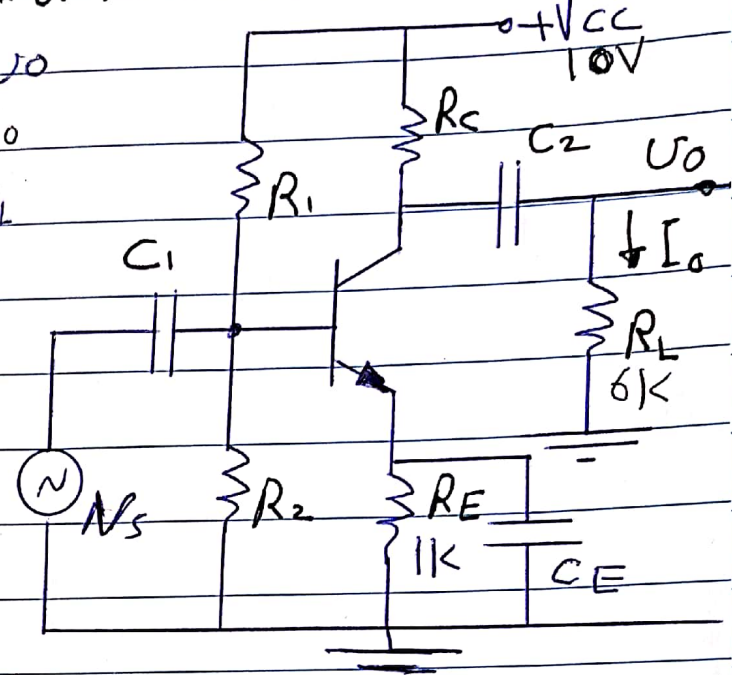 +VCC
10V
RC
C2
U0
R1
Io
C1
RL
6K
N
Ns
R2
RE
1K
CE